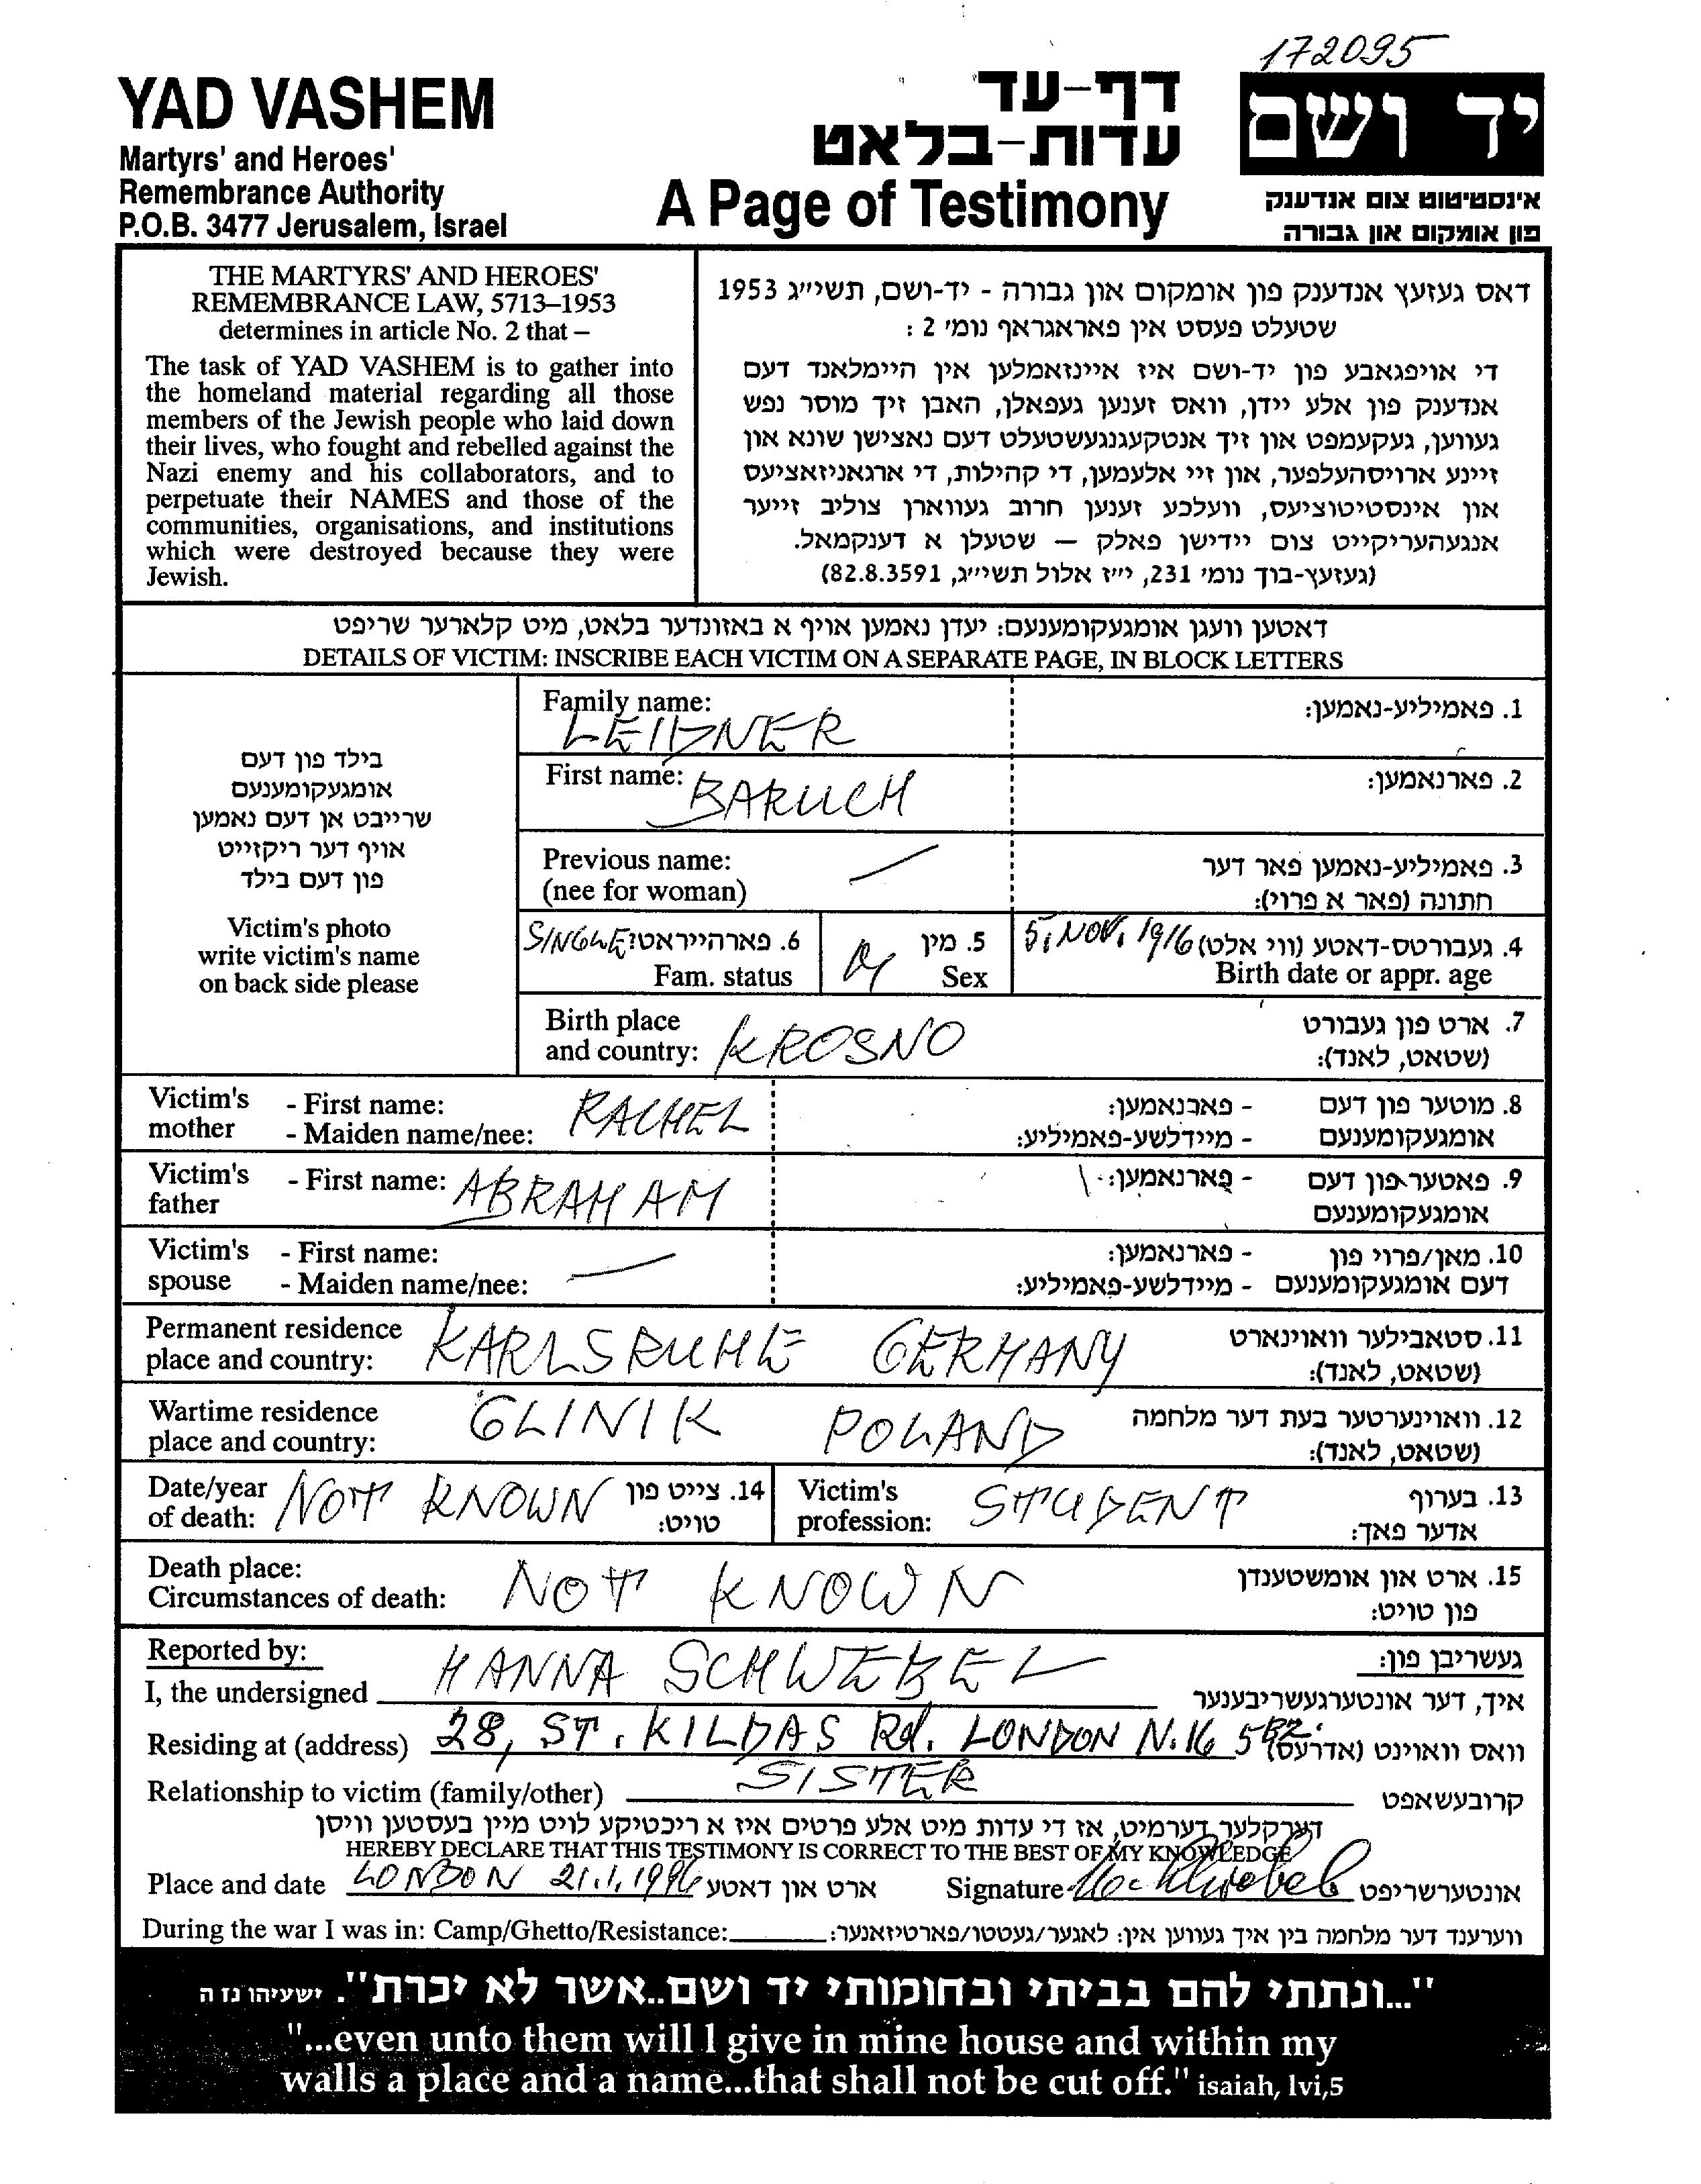 172095
YAD VASHEM
Martyrs' and Heroes'
Remembrance Authority
P.O.B. 3477 Jerusalem, Israel
דף-עד
עדות-בלאט
A Page of Testimony
יד ושם
אינסטיטוט צום אנדענק
פון אומקום און גבורה
THE MARTYRS' AND HEROES'
REMEMBRANCE LAW, 5713–1953
determines in article No. 2 that –
The task of YAD VASHEM is to gather into
the homeland material regarding all those
members of the Jewish people who laid down
their lives, who fought and rebelled against the
Nazi enemy and his collaborators, and to
perpetuate their NAMES and those of the
communities, organisations, and institutions
which were destroyed because they were
Jewish.
דאס געזעץ אנדענק פון אומקום און גבורה - יד-ושם, תשי״ג 1953
שטעלט פעסט אין פאראגראף נומ׳ 2 :
די אויפגאבע פון יד-ושם איז איינזאמלען אין היימלאנד דעם
אנדענק פון אלע יידן, וואס זענען געפאלן, האבן זיך מוסר נפש
געווען, געקעמפט און זיך אנטקעגנגעשטעלט דעם נאצישן שונא און
זיינע ארויסהעלפער, און זיי אלעמען, די קהילות, די ארגאניזאציעס
און אינסטיטוציעס, וועלכע זענען חרוב געווארן צוליב זייער
אנגעהעריקייט צום יידישן פאלק — שטעלן א דענקמאל.
(געזעץ-בוך נומ׳ 231, י״ז אלול תשי״ג, 82.8.3591)
דאטען וועגן אומגעקומענעם: יעדן נאמען אויף א באזונדער בלאט, מיט קלארער שריפט
DETAILS OF VICTIM: INSCRIBE EACH VICTIM ON A SEPARATE PAGE, IN BLOCK LETTERS
בילד פון דעם
אומגעקומענעם
שרייבט אן דעם נאמען
אויף דער ריקזייט
פון דעם בילד
Victim's photo
write victim's name
on back side please
Family name: 1. פאמיליע-נאמען:
LEIDNER
First name: BARUCH 2. פארנאמען:
Previous name: 3. פאמיליע-נאמען פאר דער
(nee for woman) חתונה (פאר א פרוי):
SINGLE 6. פארהייראט? 5. מין 5. NOV. 1916 4. געבורטס-דאטע (ווי אלט)
Fam. status M Sex Birth date or appr. age
Birth place 7. ארט פון געבורט
and country: KROSNO (שטאט, לאנד):
Victim's - First name: RACHEL - פארנאמען: 8. מוטער פון דעם
mother - Maiden name/nee: - מיידלשע-פאמיליע: אומגעקומענעם
Victim's - First name: ABRAHAM - פארנאמען: 9. פאטער פון דעם
father אומגעקומענעם
Victim's - First name: - פארנאמען: 10. מאן/פרוי פון
spouse - Maiden name/nee: - מיידלשע-פאמיליע: דעם אומגעקומענעם
Permanent residence KARLSRUHE GERMANY 11. סטאבילער וואוינארט
place and country: (שטאט, לאנד):
Wartime residence GLINIK POLAND 12. וואוינערטער בעת דער מלחמה
place and country: (שטאט, לאנד):
Date/year NOT KNOWN 14. צייט פון Victim's STUDENT 13. בערוף
of death: טויט: profession: אדער פאך:
Death place: NOT KNOWN 15. ארט און אומשטענדן
Circumstances of death: פון טויט:
Reported by: געשריבן פון:
I, the undersigned HANNA SCHWEBEL איך, דער אונטערגעשריבענער
Residing at (address) 28, ST. KILDAS Rd. LONDON N.16 5BZ. וואס וואוינט (אדרעס)
Relationship to victim (family/other) SISTER קרובעשאפט
דערקלער דערמיט, אז די עדות מיט אלע פרטים איז א ריכטיקע לויט מיין בעסטען וויסן
HEREBY DECLARE THAT THIS TESTIMONY IS CORRECT TO THE BEST OF MY KNOWLEDGE
Place and date LONDON 21.1.1996 ארט און דאטע Signature H. Schwebel אונטערשריפט
During the war I was in: Camp/Ghetto/Resistance: ווערענד דער מלחמה בין איך געווען אין: לאגער/געטטו/פארטיזאנער:
"...ונתתי להם בביתי ובחומותי יד ושם..אשר לא יכרת". ישעיהו נז ה
"...even unto them will I give in mine house and within my
walls a place and a name...that shall not be cut off." isaiah, lvi,5